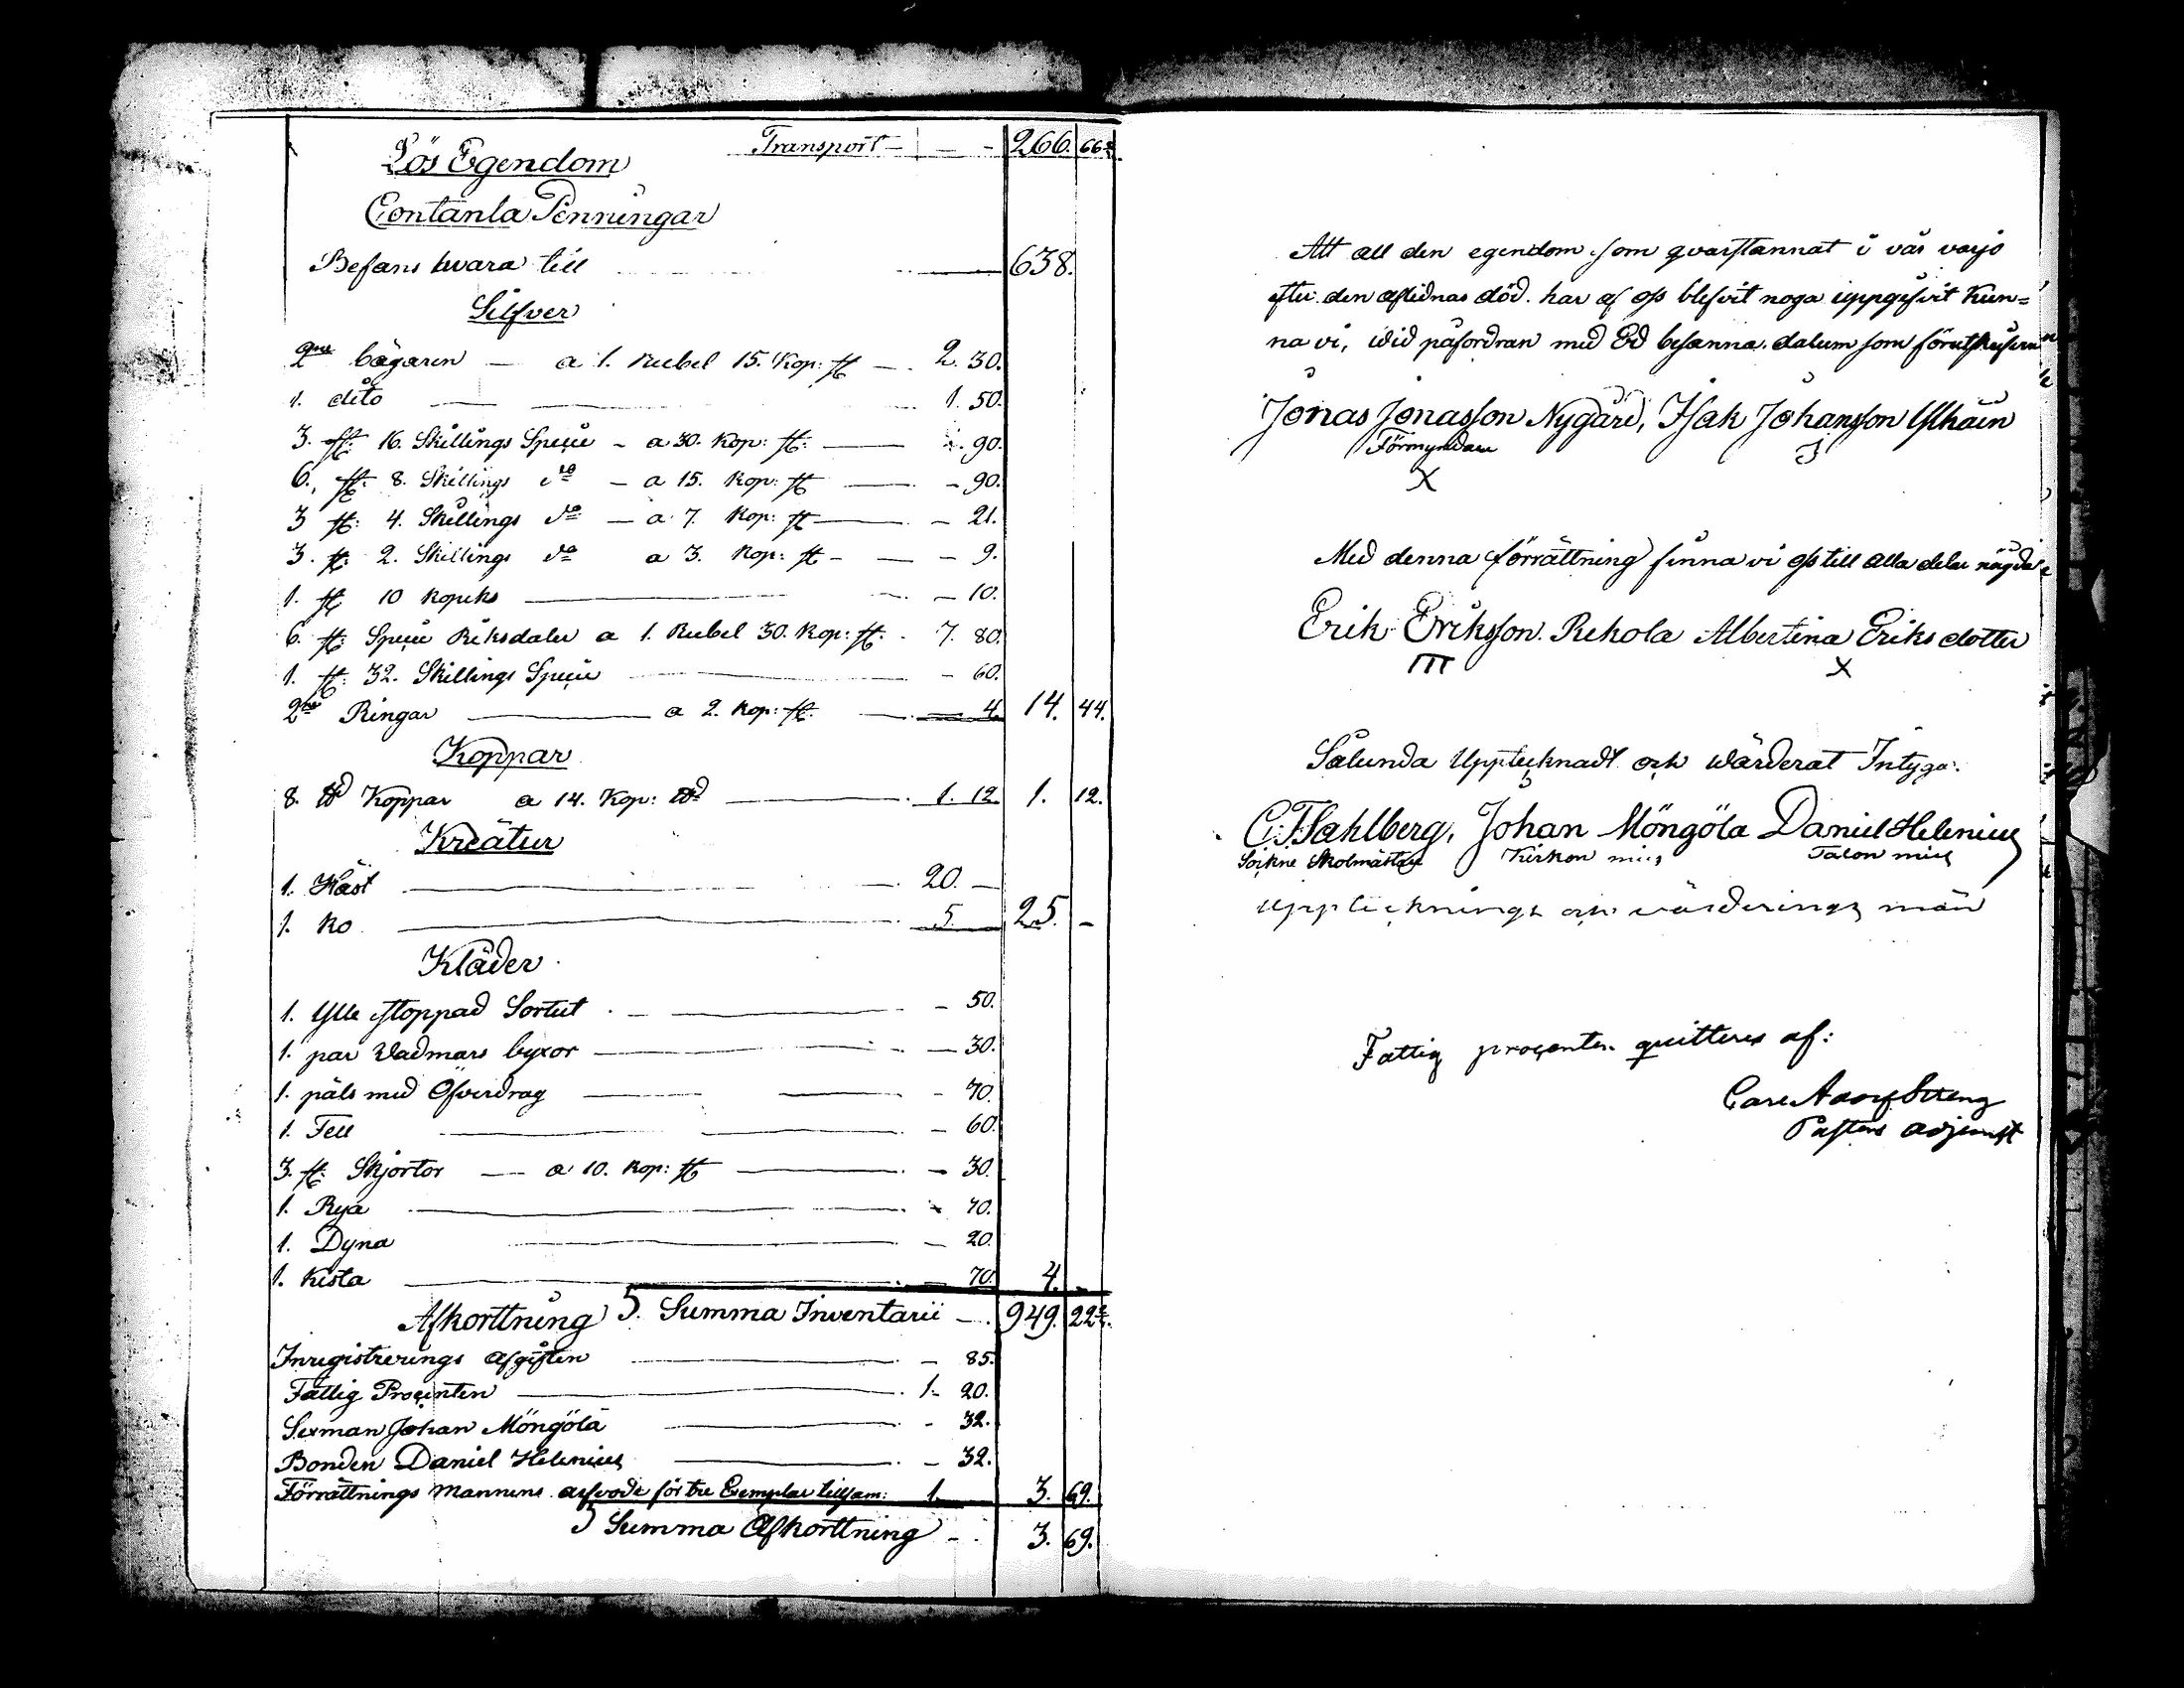 Transport — — - 266. 66 2/3.
Lös Egendom
Contanta Penningar
Befans vara till — 638.
Silfver
2ne bägaren — a 1. Rubel 15. Kop: st — 2. 30.
1. dito — — 1. 50.
3. st. 16. Skillings Speçie - a 30. Kop: st: — - 90.
6. st: 8. Skillings do — a 15. Kop: st — - 90.
3 st: 4. Skillings do — a 7. Kop: st — - 21.
3. st: 2. Skillings do a 3. Kop: st - — - 9.
1. st 10 Kopeks — - 10.
6. st: Speçie Riksdaler a 1. Rubel 30. Kop: st: - 7. 80.
1. st: 32. Skillings Speçie — - 60.
2ne Ringar — a 2. Kop: st. — 4. 14. 44.
Koppar
8. ℔d Koppar a 14. Kop: ℔d — 1. 12 1. 12.
Kreatur
1. Häst — 20. —
1. Ko — 5. 25. -
Kläder
1. Ylle stoppad Sortut - — - 50.
1. par Vadmars byxor — - 30.
1. päls med Öfverdrag — - 70.
1. Fell — - 60.
3. st: Skjortor — a 10. Kop: st — - 30.
1. Rya — - 70.
1. Dyna — - 20.
1. Kista — - 70. 4. -
Afkorttning Summa Inventarii — 949. 22 2/3.
Inregistrerings afgiften — - 85.
Fattig Proçenten — 1. 20.
Sexman Johan Möngölä — - 32.
Bonden Daniel Helenius — - 32.
Förrättnings Mannens arfvode för tre Exemplar tillsam: 1. — 3. 69.
Summa Afkorttning - 3. 69.
Att all den egendom som qvarstannat i vår varjo
efter den aflidnas död. har af oss blefvit noga uppgifvit Kun=
na vi, wid påfordran med Ed besanna. datum som förutskrifven
Jonas Jonasson Nygård, Isak Johansson Ylhäin
Förmyndare
X
Med denna förrättning finna vi oss till alla delar nögda
Erik Eriksson Rekola Albertina Eriks dotter
III X
Sålunda Upptecknadt och Wärderat Intyga:
C. F. Sahlberg, Johan Möngölä Daniel Helenius
Sockne Skolmästare Kirkon mies Talon mies
Upptecknings och värderings män
Fattig proçenten quitteres af:
Carl Adolf Streng
Pastors adjunkt